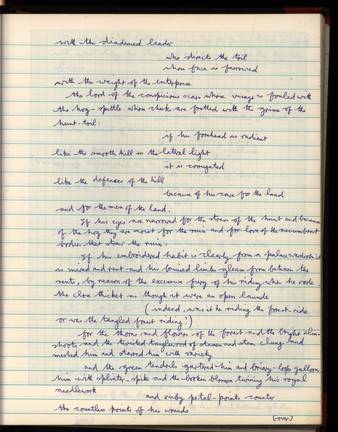 with the diademed leader
who directs the toil
whose face is furrowed
with the weight of the enterprise
the lord of the conspicuous scars whose visage is fouled with
the hog-spittle whose cheeks are fretted with the grime of the
hunt-toil:
if his forehead is radiant
like the smooth hill in the lateral light
it is corrugated
like the defences of the hill
because of his care for the land
and for the men of the land.
If his eyes are narrowed for the stress of the hunt and because
of the hog they are moist for the ruin and for love of the recumbent
bodies that strew the ruin.
If his embroidered habit is clearly from a palace wardrobe it
is mired and rent and his bruised limbs gleam from between the
rents, by reason of the excessive fury of his riding when he rode
the close thicket as though it were an open launde
(indeed, was it he riding the forest-ride
or was the tangled forest riding?)
for the thorns and flowers of the forest and the bright elm-
shoots and the twisted tanglewood of stamen and stem clung and
meshed him and starred him with variety
and the green tendrils gartered him and briary-loops galloon
him with splinter-spike and the broken blossom twining his royal
needlework
and ruby petal-points counter
the countless points of his wounds
(over)